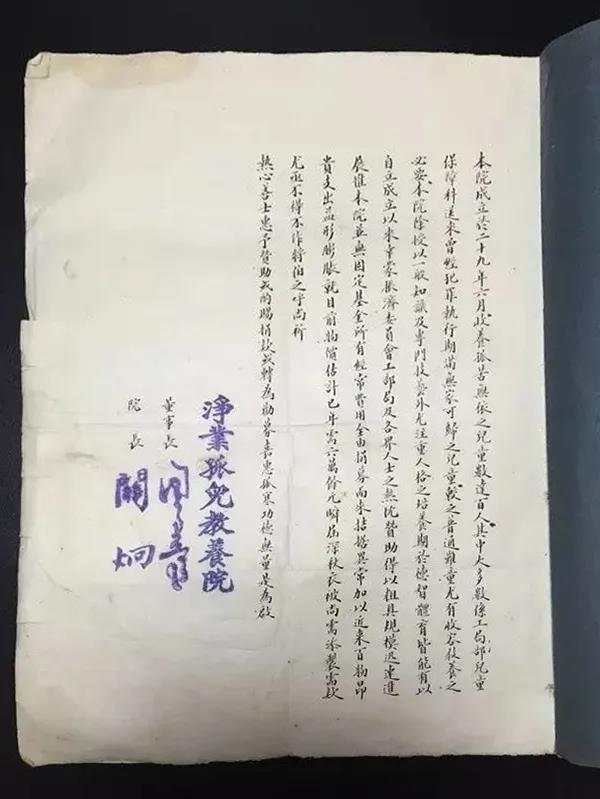 本院成立於二十九年六月收養孤苦無依之兒童數達百人其中大多數係工局部兒童
保障科送來曾經犯罪執行期滿無家可歸之兒童較之普通難童尤有收容教養之
必要本院除授以一般知識及專門技藝外尤注重人格之培養期於德智體育皆能有以
自立成立以來幸蒙振濟委員會工部局及各界人士之熱忱贊助得以粗具規模迅速進
展惟本院並無固定基金所有經常費用全由捐募而來拮据異常加以近來百物昂
貴支出益形膨脹就目前物價估計已年需六萬餘元瞬屆深秋衣被尚需添製需款
尤亟不得不作將伯之呼尚祈
熱心善士惠予贊助或酌賜捐款或轉為勸募嘉惠孤寒功德無量是為啟
淨業孤兒教養院
董事長
院長 關炯